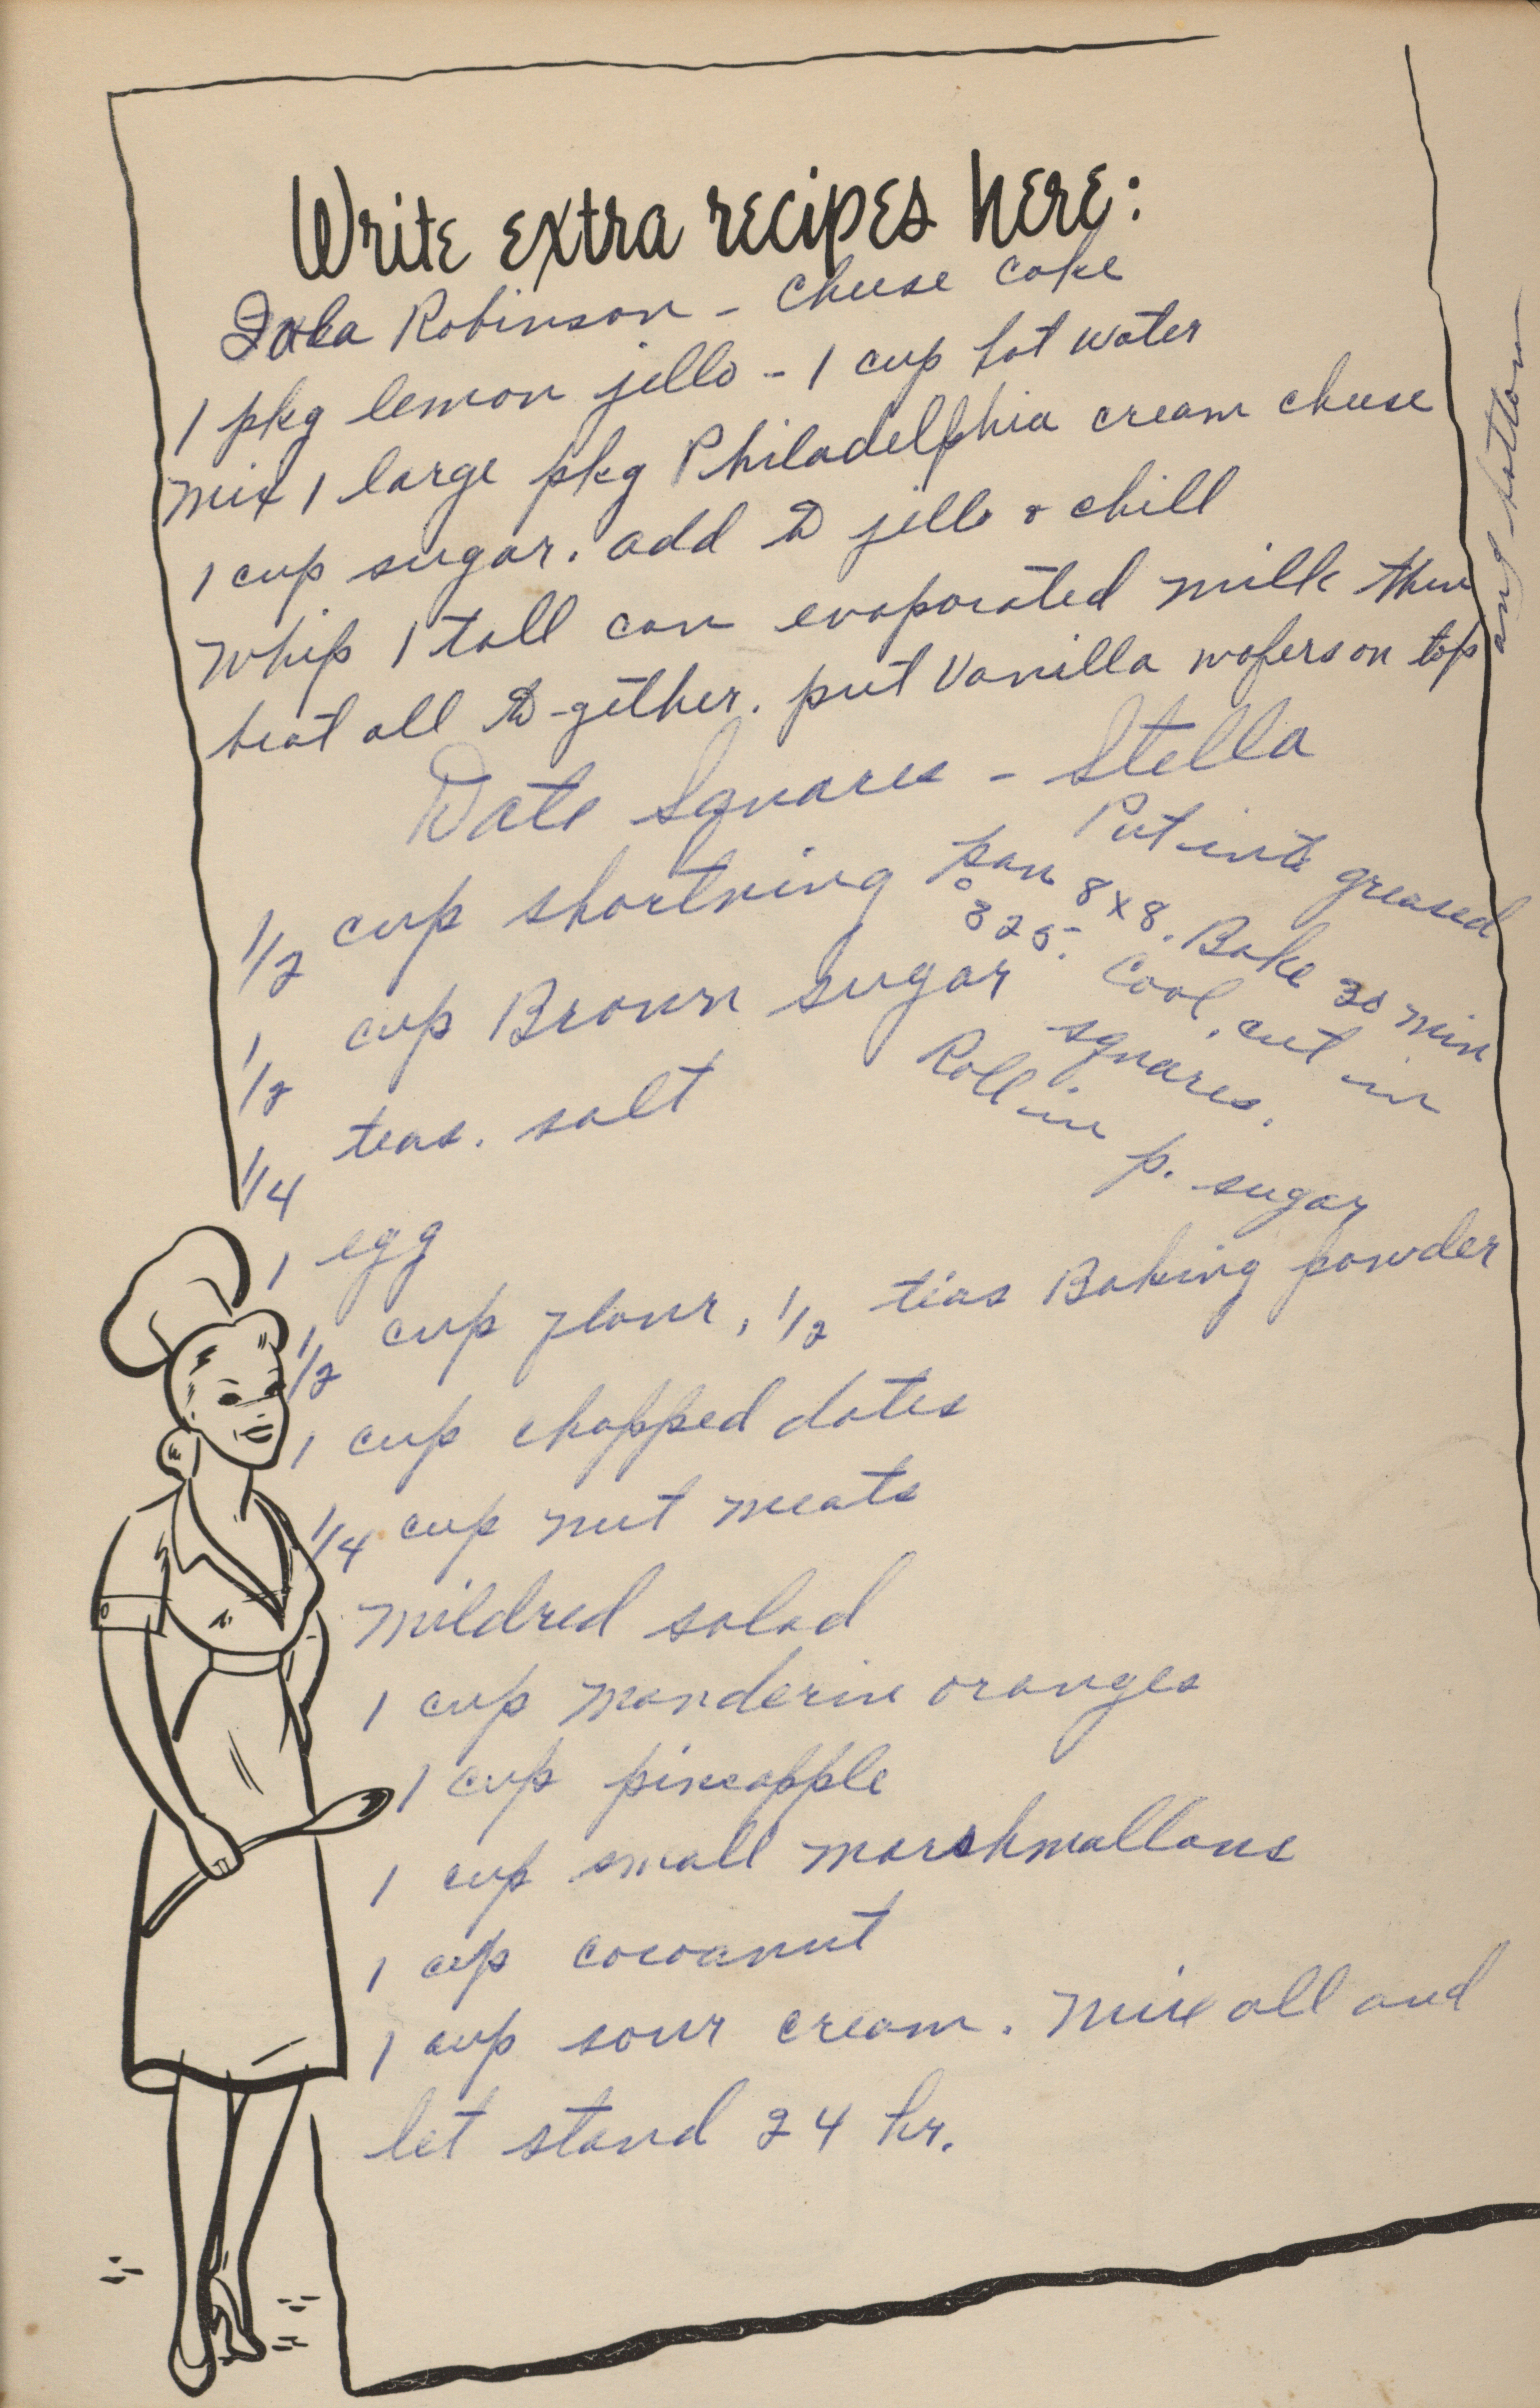 Write extra recipes here:
Robinson - Cheese cake
1 pkg lemon jello - 1 cup hot water
mix 1 large pkg Philadelphia cream cheese
1 cup sugar. add to jello & chill
whip 1 tall can evaporated milk then
beat all to-gether. put Vanilla wafers on top
and bottom
Date Squares - Stella
1/2 cup shortning
1/2 cup Brown sugar
1/4 teas. salt
1 egg
1/2 cup flour, 1/2 teas Baking powder
1 cup chopped dates
1/4 cup nut meats
Put into greased
pan 8x8. Bake 30 min
325°. Cool, cut in
squares.
Roll in p. sugar
Mildred salad
1 cup manderin oranges
1 cup pineapple
1 cup small marshmallows
1 cup cocoanut
1 cup sour cream. Mix all and
let stand 24 hr.